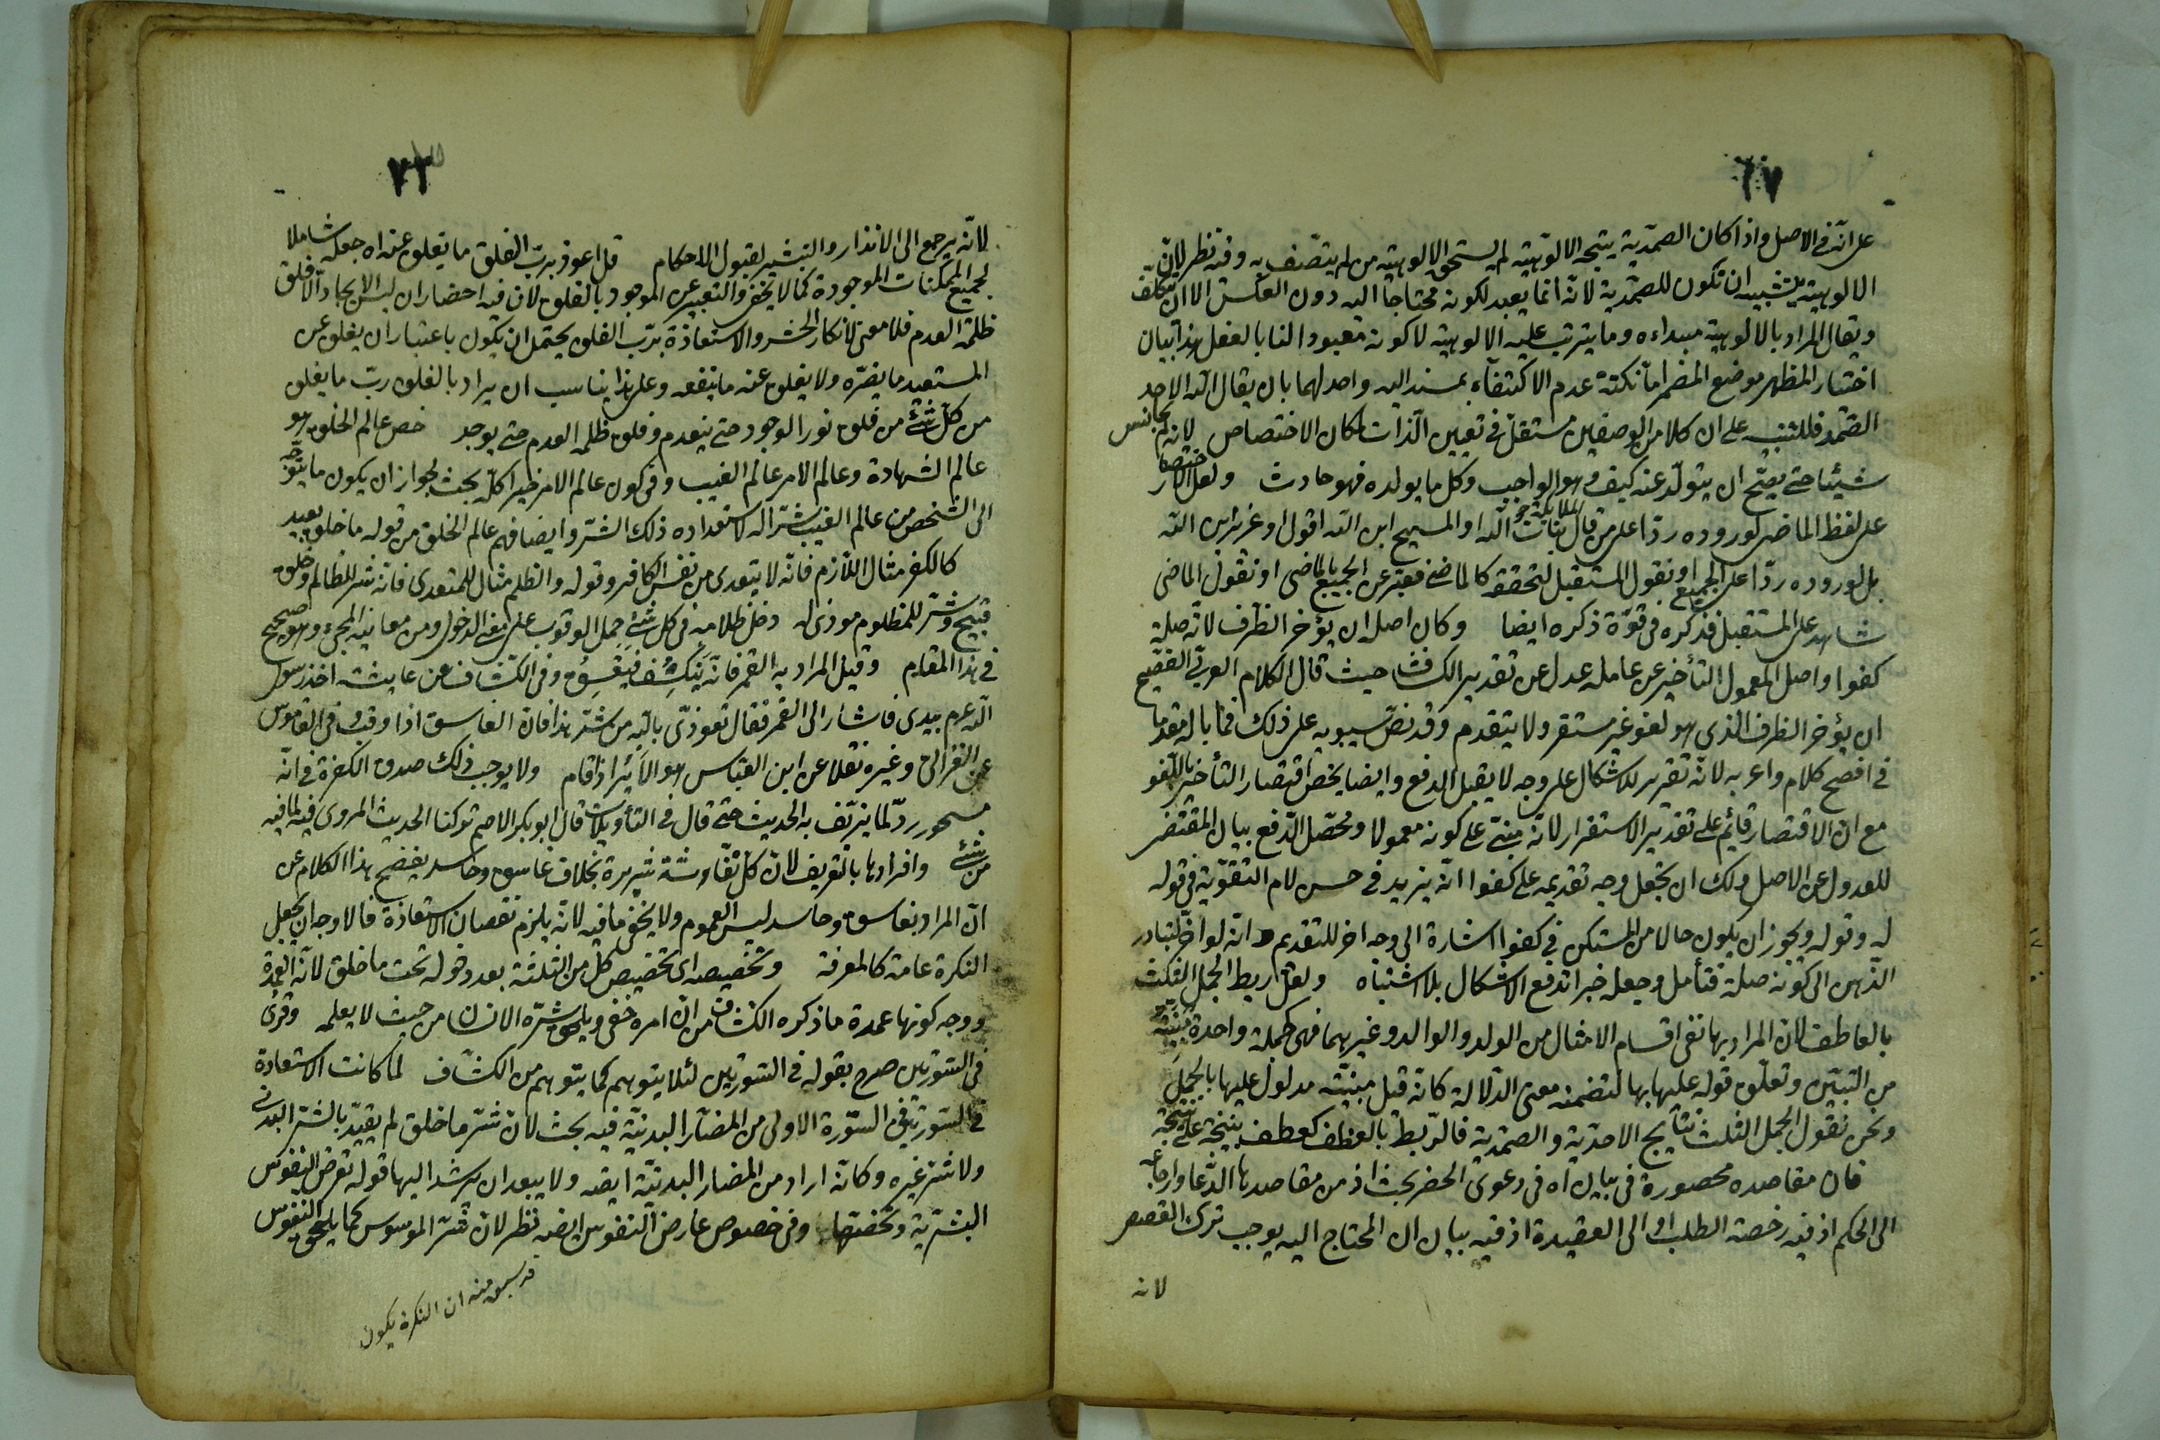 ٦٧
على انه في الاصل واذا كان الصمدية نتيجة الالوهية لم يستحق الالوهية من لم يتصف به وفيه نظر لان
الالوهية يشبه ان تكون للصمدية لانه انما يعبد لكونه محتاجا اليه دون العكس الا ان يتكلف
ويقال المراد بالالوهية مبداءه وما يترتب عليه الالوهية لا كونه معبودا لنا بالفعل هذا بيان
اختيار المظهر موضع المضمر اما نكتة عدم الاكتفاء بمسند اليه واحد لهما بان يقال الله الاحد
الصمد فللتنبيه على ان كلا من الوصفين مستقل في تعيين الذات لمكان الاختصاص لانه لم يجانس
شيئا حتى يصح ان يتولد عنه كيف وهو الواجب وكل ما يولده فهو حادث ولعل الاقتصار
على لفظ الماضي لوروده ردا على من قال الملائكة بنات الله او المسيح ابن الله اقول او عزير ابن الله
بل لوروده ردا على الجميع او نقول المستقبل لتحققه كالماضي فعبر عن الجميع بالماضي او نقول الماضي
شاهد على المستقبل فذكره في قوة ذكره ايضا وكان اصل ان يؤخر الظرف لانه صلة
كفوا واصل المعمول التأخير عن عامله عدل عن تقدير الكشاف حيث قال الكلام العربي الفصيح
ان يؤخر الظرف الذي هو لغو غير مستقر ولا يتقدم وقد نص سيبويه على ذلك فما باله مقدما
في افصح كلام واعربه لانه تقرير للاشكال على وجه لا يقبل الدفع وايضا يخص اقتصار التأخير باللغو
مع ان الاقتصار قائم على تقدير الاستقرار لانه مبني على كونه معمولا ومحصل الدفع بيان المقتضر
للعدول عن الاصل ولك ان تجعل وجه تقديمه على كفوا انه يزيد في حسن لام التقوية في قوله
له وقوله ويجوز ان يكون حالا من المستكن في كفوا اشارة الى وجه اخر للتقديم وهو انه لو اخر لتبادر
الذهن الى كونه صلة فتأمل وجعله خبرا تدفع الاشكال بلا اشتباه ولعل ربط الجمل الثلث
بالعاطف لان المراد بها نفي اقسام الامثال من الولد والوالد وغيرهما فهي كجملة واحدة مبنية
من التبيين وتعلق قوله عليها بها لتضمنه معنى الدلالة كانه قيل مبنية مدلول عليها بالجمل
ونحن نقول الجمل الثلث نتايج الاحدية والصمدية فالربط بالعطف كعطف نتيجة على نتيجة
فان مقاصده محصورة في بيان اه في دعوى الحصر بحث اذ من مقاصدها الدعا وارجاعه
الى الحكم اذ فيه رخصة الطلب او الى العقيدة اذ فيه بيان ان المحتاج اليه يوجب ترك القصص
لانه
٧٣
لانه يرجع الى الانذار والتبشير لقبول الاحكام قل اعوذ برب الفلق ما يفلق عنه اه جعله شاملا
لجميع الممكنات الموجودة كما لا يخفى والتعبير عن الموجود بالفلق لان فيه احضار ان ليس الايجاد الا فلق
ظلمة العدم فلا معنى لانكار الحشر والاستعاذة برب الفلق يحتمل ان يكون باعتبار ان يفلق عن
المستعيذ ما يضره ولا يفلق عنه ما ينفعه وعلى هذا يناسب ان يراد بالفلق رب ما يفلق
من كل شئ من فلق نور الوجود حتى ينعدم وفلق ظلمة العدم حتى يوجد خص عالم الخلق هو
عالم الشهادة وعالم الامر عالم الغيب وفي كون عالم الامر خيرا كله بحث لجواز ان يكون ما يتوجه
الى الشخص من عالم الغيب شرا له لاستعداده ذلك الشر وايضا فهم عالم الخلق من قوله ما خلق بعيد
كالكفر مثال اللازم فانه لا يتعدى من نفس الكافر وقوله والظلم مثال للمتعدى فانه شر للظالم وخلق
قبيح وشر للمظلوم موذى له دخل ظلامه في كل شئ حمل الوقوب على معنى الدخول ومن معانيه المجئ وهو صحيح
في هذا المقام وقيل المراد به القمر فانه ينكسف فيغسق وفي الكشاف عن عايشة اخذ رسول
الله عم بيدى فاشار الى القمر فقال تعوذى بالله من شر هذا فانه الغاسق اذا وقب وفي القاموس
عن الغزالي وغيره نقلا عن ابن العباس هو الاير اذا قام ولا يوجب ذلك صدق الكفرة في انه
مسحور رد لما يزيف به الحديث حتى قال في التأويلات قال ابو بكر الاصم تركنا الحديث المروى فيه لما فيه
من شئ وافرادها بالتعريف لان كل نفاثة شريرة بخلاف غاسق وحاسد يفضح هذا الكلام عن
ان المراد بغاسق وحاسد ليس العموم ولا يخفى ما فيه لانه يلزم نقصان الاستعاذة فالاوجه ان يجعل
النكرة عامة كالمعرفة وتخصيصه اى تخصيص كل من الثلثة بعد دخوله تحت ما خلق لانه العمدة
ووجه كونها عمدة ما ذكره الكشاف من ان امره خفي ويلحق شره الانسان من حيث لا يعلمه وقرئ
في السورتين صرح بقوله في السورتين لئلا يتوهم كما يتوهم من الكشاف لما كانت الاستعاذة
في السورتين في السورة الاولى من المضار البدنية فيه بحث لان شر ما خلق لم يقيد بالشر البدني
ولا شر غيره وكانه اراد من المضار البدنية ايضه ولا يبعد ان يرشد اليها قوله تعرض النفوس
البشرية وتخصها وفي خصوص عارض النفوس ايضه نظر لان شر الموسوس كما يلحق النفوس
قد سبق منه ان النكرة يكون